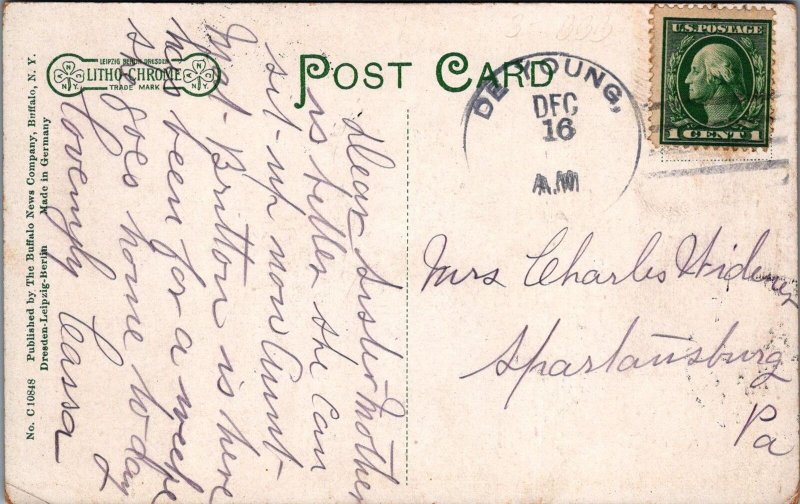 POST CARD
LEIPZIG BERLIN DRESDEN
LITHO-CHROME
TRADE MARK
N
Y
No. C10848 Published by The Buffalo News Company, Buffalo, N. Y.
Dresden-Leipzig-Berlin Made in Germany
DE YOUNG,
DEC
16
A.M
U.S. POSTAGE
1 CENT 1
Dear Sister Mother
is better she can
sit-up now Aunt
Mat-Britton is here
has been for a week
she goes home today
Lovingly Cassa
Mrs Charles Widener
Spartansburg
Pa